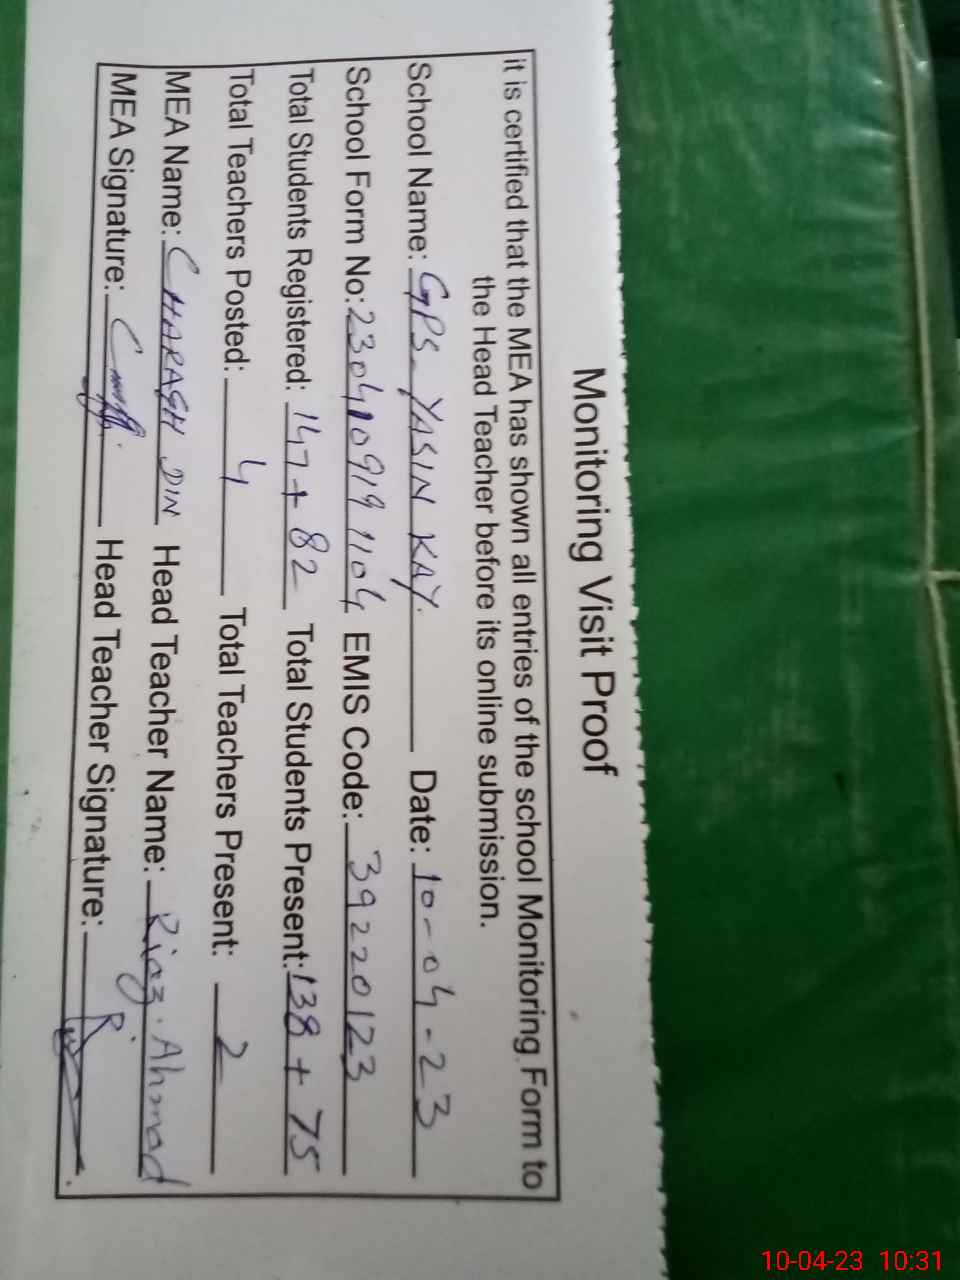 Monitoring Visit Proof
it is certified that the MEA has shown all entries of the school Monitoring Form to
the Head Teacher before its online submission.
School Name: GPS YASIN KAY. Date: 10-04-23
School Form No: 2304109191104 EMIS Code: 39220123
Total Students Registered: 147 + 82 Total Students Present: 138 + 75
Total Teachers Posted: 4 Total Teachers Present: 2
MEA Name: CHARAGH DIN Head Teacher Name: Riaz Ahmad
MEA Signature: Head Teacher Signature:
10-04-23 10:31